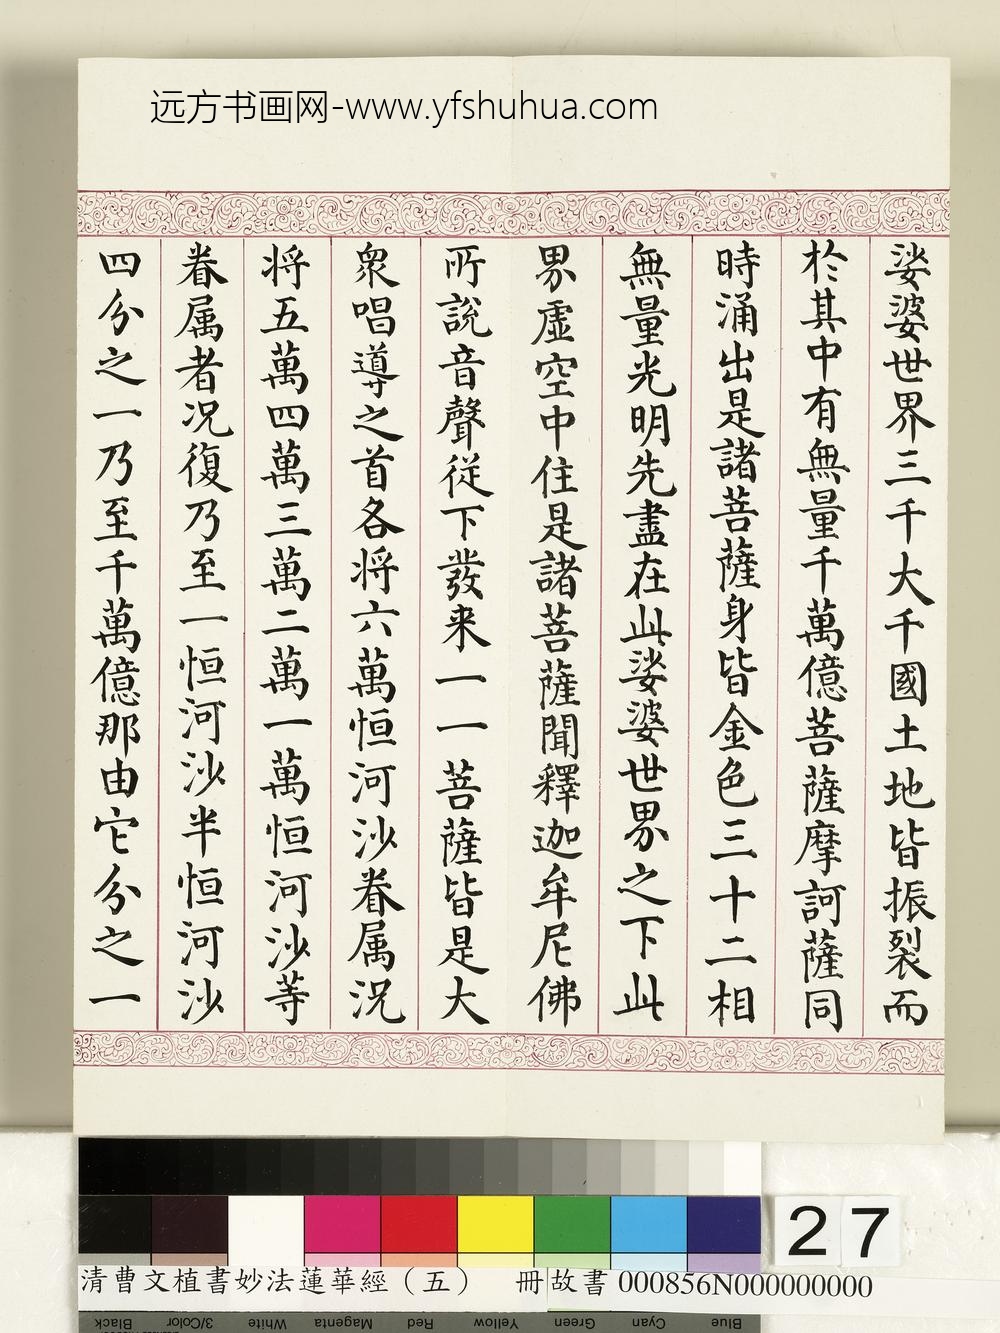 远方书画网-www.yfshuhua.com
娑婆世界三千大千國土地皆振裂而
於其中有無量千萬億菩薩摩訶薩同
時涌出是諸菩薩身皆金色三十二相
無量光明先盡在此娑婆世界之下此
界虛空中住是諸菩薩聞釋迦牟尼佛
所說音聲從下發来一一菩薩皆是大
衆唱導之首各将六萬恒河沙眷属況
将五萬四萬三萬二萬一萬恒河沙等
眷属者况復乃至一恒河沙半恒河沙
四分之一乃至千萬億那由它分之一
27
清曹文植書妙法蓮華經（五） 冊 故書 000856N000000000
Black 3/Color White Magenta Red Yellow Green Cyan Blue